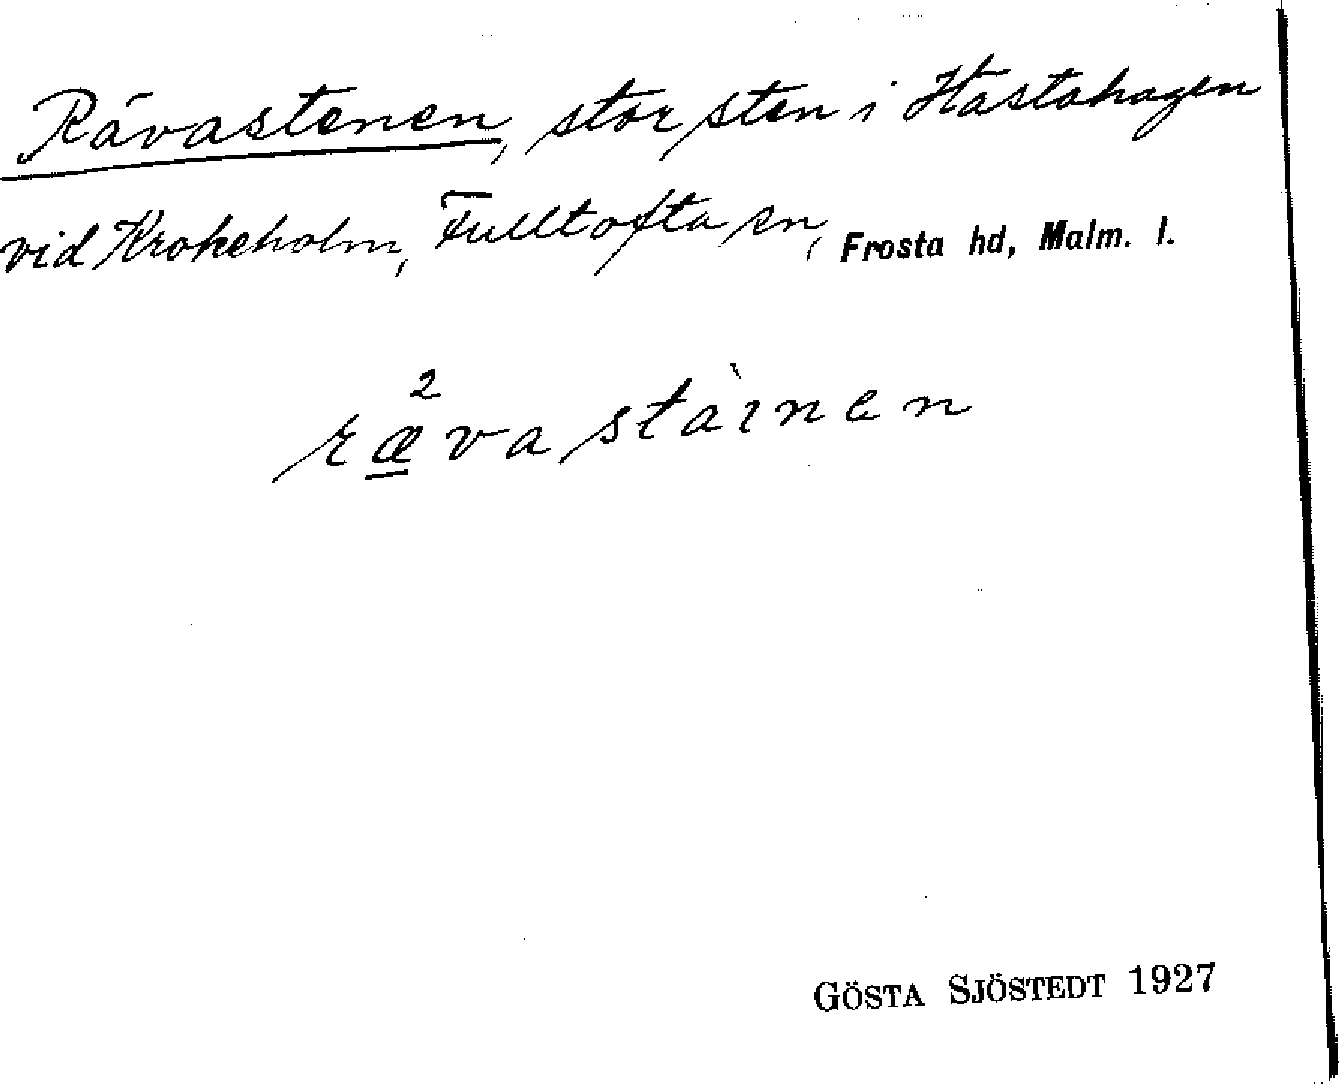 Rävastenen, stor sten i Hästahagen
vid Krokeholm, Fulltofta sn, Frosta hd, Malm. l.
ræ²vastàinen
GÖSTA SJÖSTEDT 1927